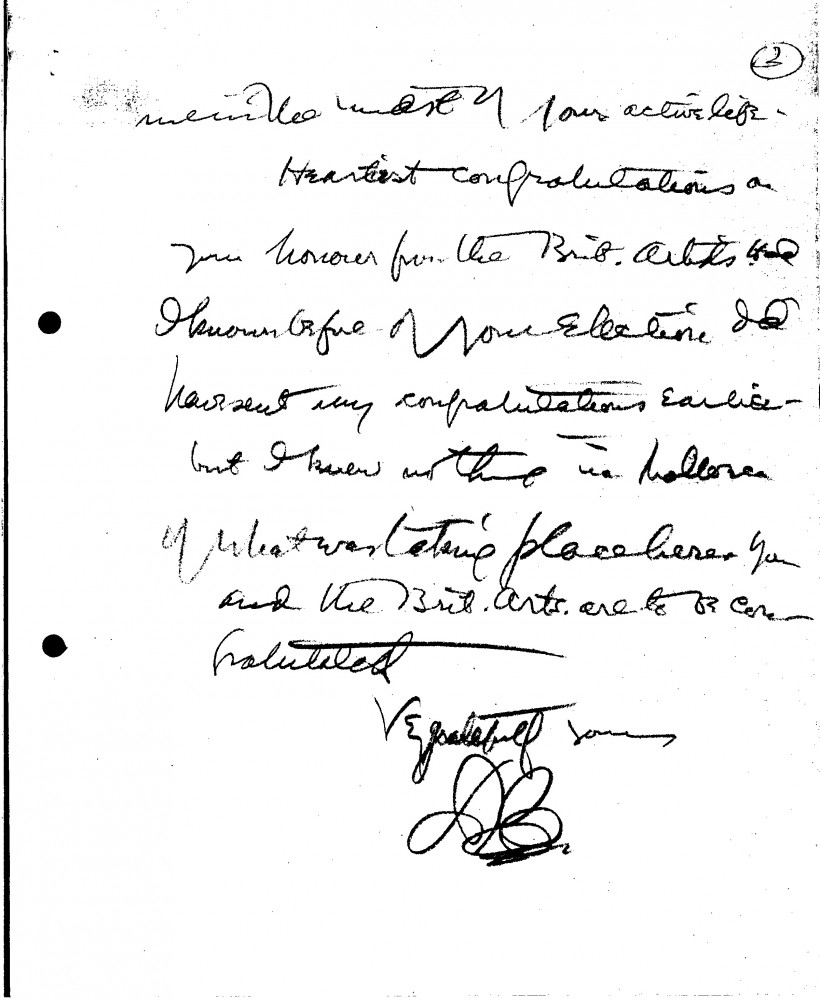 2
me in the midst of your active life -
Heartiest congratulations on
your honour from the Brit. Artists Had
I known before of your Election I'd
have sent my congratulations earlier -
but I knew nothing in Mallorca
of what was taking place here. You
and the Brit. Arts. are to be con-
gratulated
Vy gratefully yours